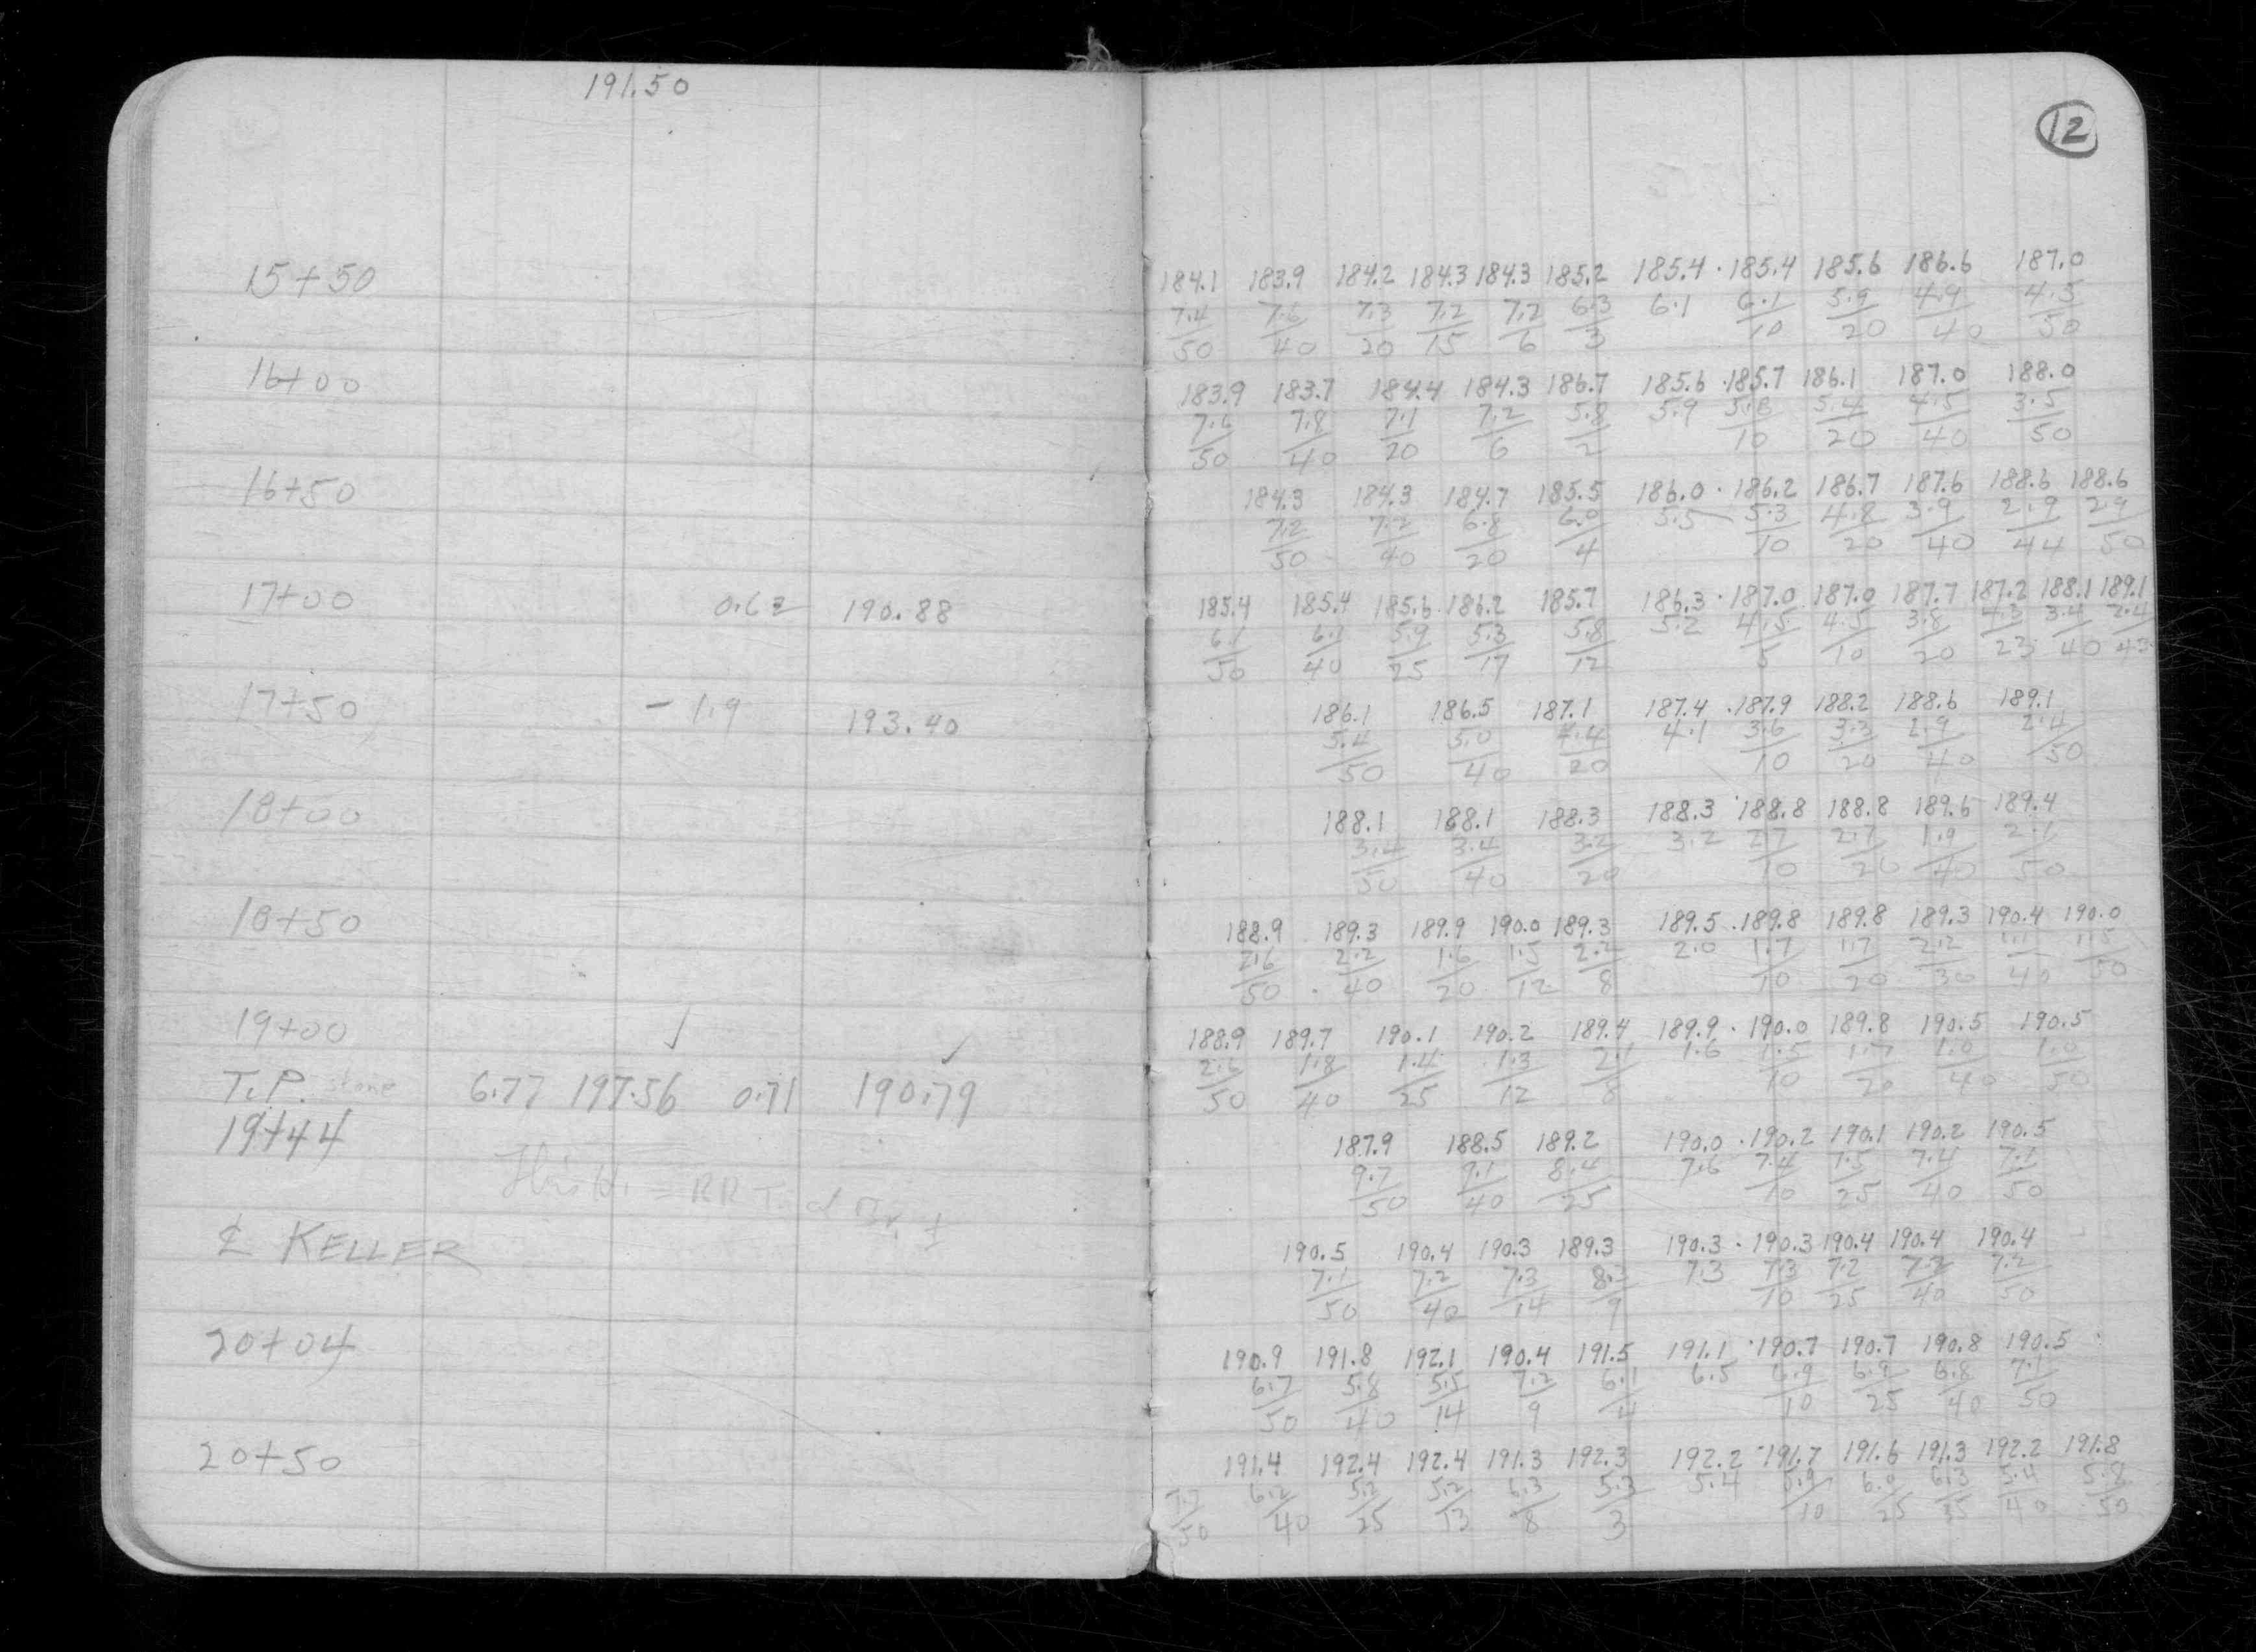 191.50
12
15+50 184.1 183.9 184.2 184.3 184.3 185.2 185.4 · 185.4 185.6 186.6 187.0
7.4/50 7.6/40 7.3/20 7.2/15 7.2/6 6.3/3 6.1 6.1/10 5.9/20 4.9/40 4.5/50
16+00 183.9 183.7 184.4 184.3 186.7 185.6 · 185.7 186.1 187.0 188.0
7.6/50 7.8/40 7.1/20 7.2/6 5.8/2 5.9 5.8/10 5.4/20 4.5/40 3.5/50
16+50 184.3 184.3 184.7 185.5 186.0 · 186.2 186.7 187.6 188.6 188.6
7.2/50 7.2/40 6.8/20 6.0/4 5.5 5.3/10 4.8/20 3.9/40 2.9/44 2.9/50
17+00 0.62 190.88 185.4 185.4 185.6 186.2 185.7 186.3 · 187.0 187.0 187.7 187.2 188.1 189.1
6.1/50 6.1/40 5.9/25 5.3/17 5.8/12 5.2 4.5/5 4.5/10 3.8/20 4.3/23 3.4/40 2.4/43
17+50 - 1.9 193.40 186.1 186.5 187.1 187.4 · 187.9 188.2 188.6 189.1
5.4/50 5.0/40 4.4/20 4.1 3.6/10 3.3/20 2.9/40 2.4/50
18+00 188.1 188.1 188.3 188.3 · 188.8 188.8 189.6 189.4
3.4/50 3.4/40 3.2/20 3.2 2.7/10 2.7/20 1.9/40 2.1/50
18+50 188.9 189.3 189.9 190.0 189.3 189.5 · 189.8 189.8 189.3 190.4 190.0
2.6/50 2.2/40 1.6/20 1.5/12 2.2/8 2.0 1.7/10 1.7/20 2.2/30 1.1/40 1.5/50
19+00 ✓ ✓ 188.9 189.7 190.1 190.2 189.4 189.9 · 190.0 189.8 190.5 190.5
T.P. stone 6.77 197.56 0.71 190.79 2.6/50 1.8/40 1.4/25 1.3/12 2.1/8 1.6 1.5/10 1.7/20 1.0/40 1.0/50
19+44 187.9 188.5 189.2 190.0 · 190.2 190.1 190.2 190.5
9.7/50 9.1/40 8.4/25 7.6 7.4/10 7.5/25 7.4/40 7.1/50
℄ KELLER 190.5 190.4 190.3 189.3 190.3 · 190.3 190.4 190.4 190.4
7.1/50 7.2/40 7.3/14 8.3/9 7.3 7.3/10 7.2/25 7.2/40 7.2/50
20+04 190.9 191.8 192.1 190.4 191.5 191.1 · 190.7 190.7 190.8 190.5
6.7/50 5.8/40 5.5/14 7.2/9 6.1/4 6.5 6.9/10 6.9/25 6.8/40 7.1/50
20+50 191.4 192.4 192.4 191.3 192.3 192.2 · 191.7 191.6 191.3 192.2 191.8
6.2/40 5.2/25 5.2/13 6.3/8 5.3/3 5.4 5.9/10 6.0/25 6.3/35 5.4/40 5.8/50